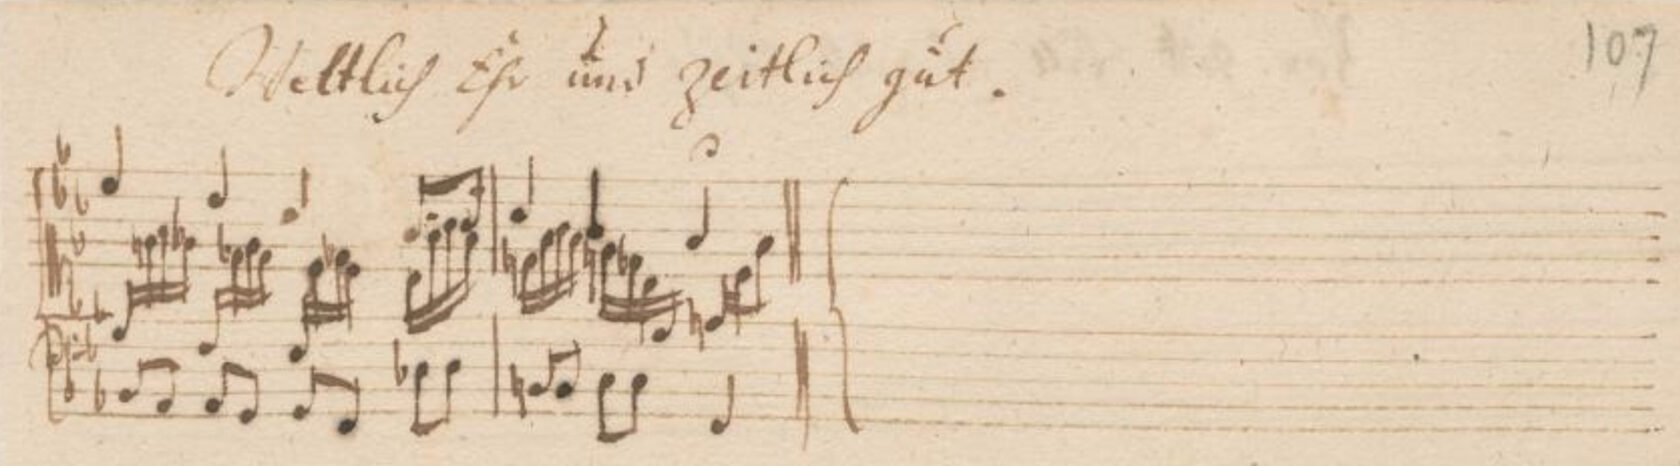 Weltlich Ehr und zeitlich gut.
107